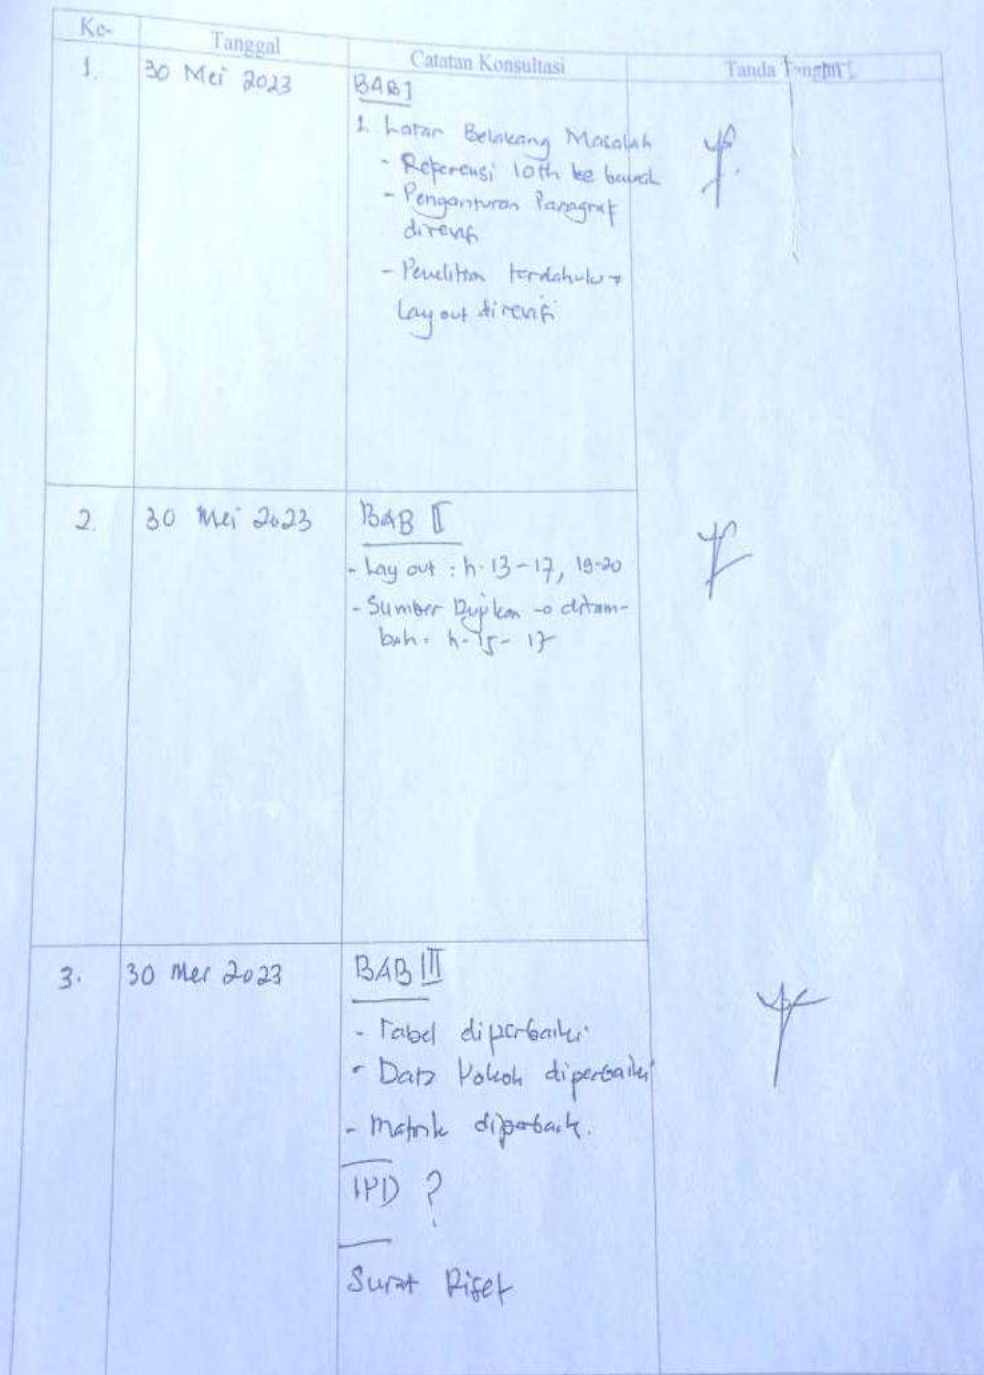 Ke- Tanggal Catatan Konsultasi Tanda
1. 30 Mei 2023 BAB I
1. Latar Belakang Masalah
- Referensi 10th ke bawah
- Penganturan Paragraf
direvisi
- Penelitian terdahulu →
Lay out direvisi
2. 30 Mei 2023 BAB II
- Lay out : h. 13-17, 19-20
- Sumber → ditam-
bah = h-15-17
3. 30 Mei 2023 BAB III
- Tabel diperbaiki
- Data Pokok diperbaiki
- Matrik diperbaik.
IPD ?
Surat Riset